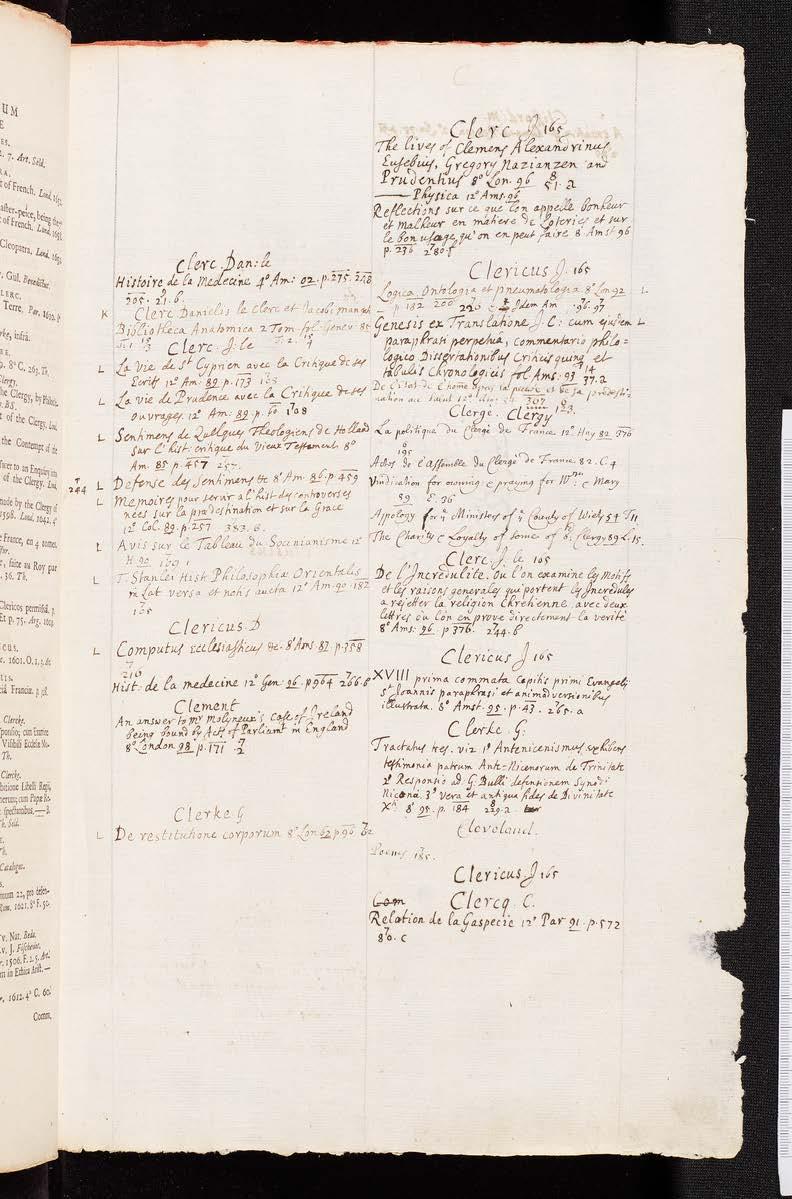 UM
7. Art. Seld.
of French. Lond.
after-peice, being the
of French. Lond.
Cleopatra, Lond.
Gul. Benedictus.
LERC.
Terre, Par. 1690.
infrà.
8º C. 263. Th.
Clergy.
the Clergy, by
B.S.
of the Clergy. Lond.
the Contempt of the
Answer to an Enquiry into
of the Clergy. Lond.
made by the Clergy of
1598. Lond. 1642.
France, en 4 tomes.
faite au Roy par
36. Th.
Clericos permissâ.
Et p. 75. Arg.
1601. O. 1. 5.
Francia.
Clerke.
Th.
Clerky.
Th. Seld.
Th.
Catalogus.
1621. 8º F. 51.
v. Nat. Beda.
v. J. Fischerius.
1506. F. 2. 5. Art.
in Ethica Arist. —
1612. 4º C. 60.
Comm.
Clerc. Dan: le
Histoire de la Medecine 4º Am: 02. p. 275. 248
205. 21. 6.
K Clerc Danielis le Clerc et Jacobi mangeti
Bibliotheca Anatomica 2 Tom. fol. Genev. 85
Clerc. J. le
L La vie de St Cyprien avec la Critique de ses
Ecrits 12º Am: 89 p. 173
L La vie de Prudence avec la Critique de ses
ouvrages. 12º Am: 89. p. 60 108
L Sentimens de Quelques Theologiens de Holland
sur l'hist: critique du Vieux Testament 8º
Am. 85 p. 457 257.
7 244 L Defense des Sentimens &c 8º Am. 86. p. 459
L Memoires pour servir a l'hist des controverses
nées sur la predestination et sur la Grace
12º Col. 89. p. 257 383. 6.
L Avis sur le Tableau du Socinianisme 12º
H. 90.
L T. Stanlei Hist Philosophiæ Orientalis
in Lat versa et notis aucta 12º Am. 90. 182
165
Clericus. D
L Computus Ecclesiasticus &c. 8º Ams 87. p. 358
7 210
Hist: de la medecine 12º Gen: 96. p 964 266. 6
Clement
An answer to Mr Molyneux's Case of Ireland
being bound by Acts of Parliamt in England
8º London 98 p. 171 7/2
Clerke G
L De restitutione corporum 8º Lon 62 p. 96 7/62
Clerc J 165
The lives of Clemens Alexandrinus
Eusebius, Gregory Nazianzen and
Prudentius 8º Lon. 96 8/51. a
—— Physica 12º Ams. 96
Reflections sur ce que l'on appelle bonheur
et malheur en matiere de loteries et sur
le bon usage qu'on en peut faire 8º Amst 96
p. 236
Clericus J. 165
Logica, Ontologia et pneumatologia 8º Lon 92 L
p. 182 200 220 Idem Am 96. 97
Genesis ex Translatione J. C: cum ejusdem L
paraphrasi perpetua, commentario philo=
logico Dissertationibus Criticis quinq et
tabulis Chronologicis fol Ams. 93 14/37. a
307 123.
Clergé. Clergy
La politique du Clergé de France. 12º Hay 82 376
8/195
Actes de l'assemblée du Clergé de France. 82. C. 4
Vindication for owning & praying for Wm & Mary
89 E. 36
Apology for ye Ministers of ye County of 54 T 11
The Charity & Loyalty of some of Clergy 89 L. 15.
Clerc. J. le 165
De l'Incredulité. Ou l'on examine les Motifs
et les raisons generales qui portent les Incredules
a rejetter la religion Chretienne, avec deux
lettres ou l'on en prove directement la verité
8º Ams: 96. p 376. 7/244. 6
Clericus J 165
XVIII prima commata Capitis primi Evangelij
St Joannis paraphrasi et animadversionibus
illustrata. 8º Amst. 95. p. 43. 7/265. a
Clerke. G:
Tractatus tres. viz 1º Antenicenismus exhibens
testimonia patrum Ante-Nicenorum de Trinitate
2º Responsio ad G. Bulli defensionem Synodi
Nicena. 3º Vera et antiqua fides de Divinitate
Xti 8º 95. p. 184 8/229. a
Cleveland.
Poems 7/185.
Clericus. J 165
Com Clercq. C.
Relation de la Gaspecie 12º Par 91. p. 572
7/80. c